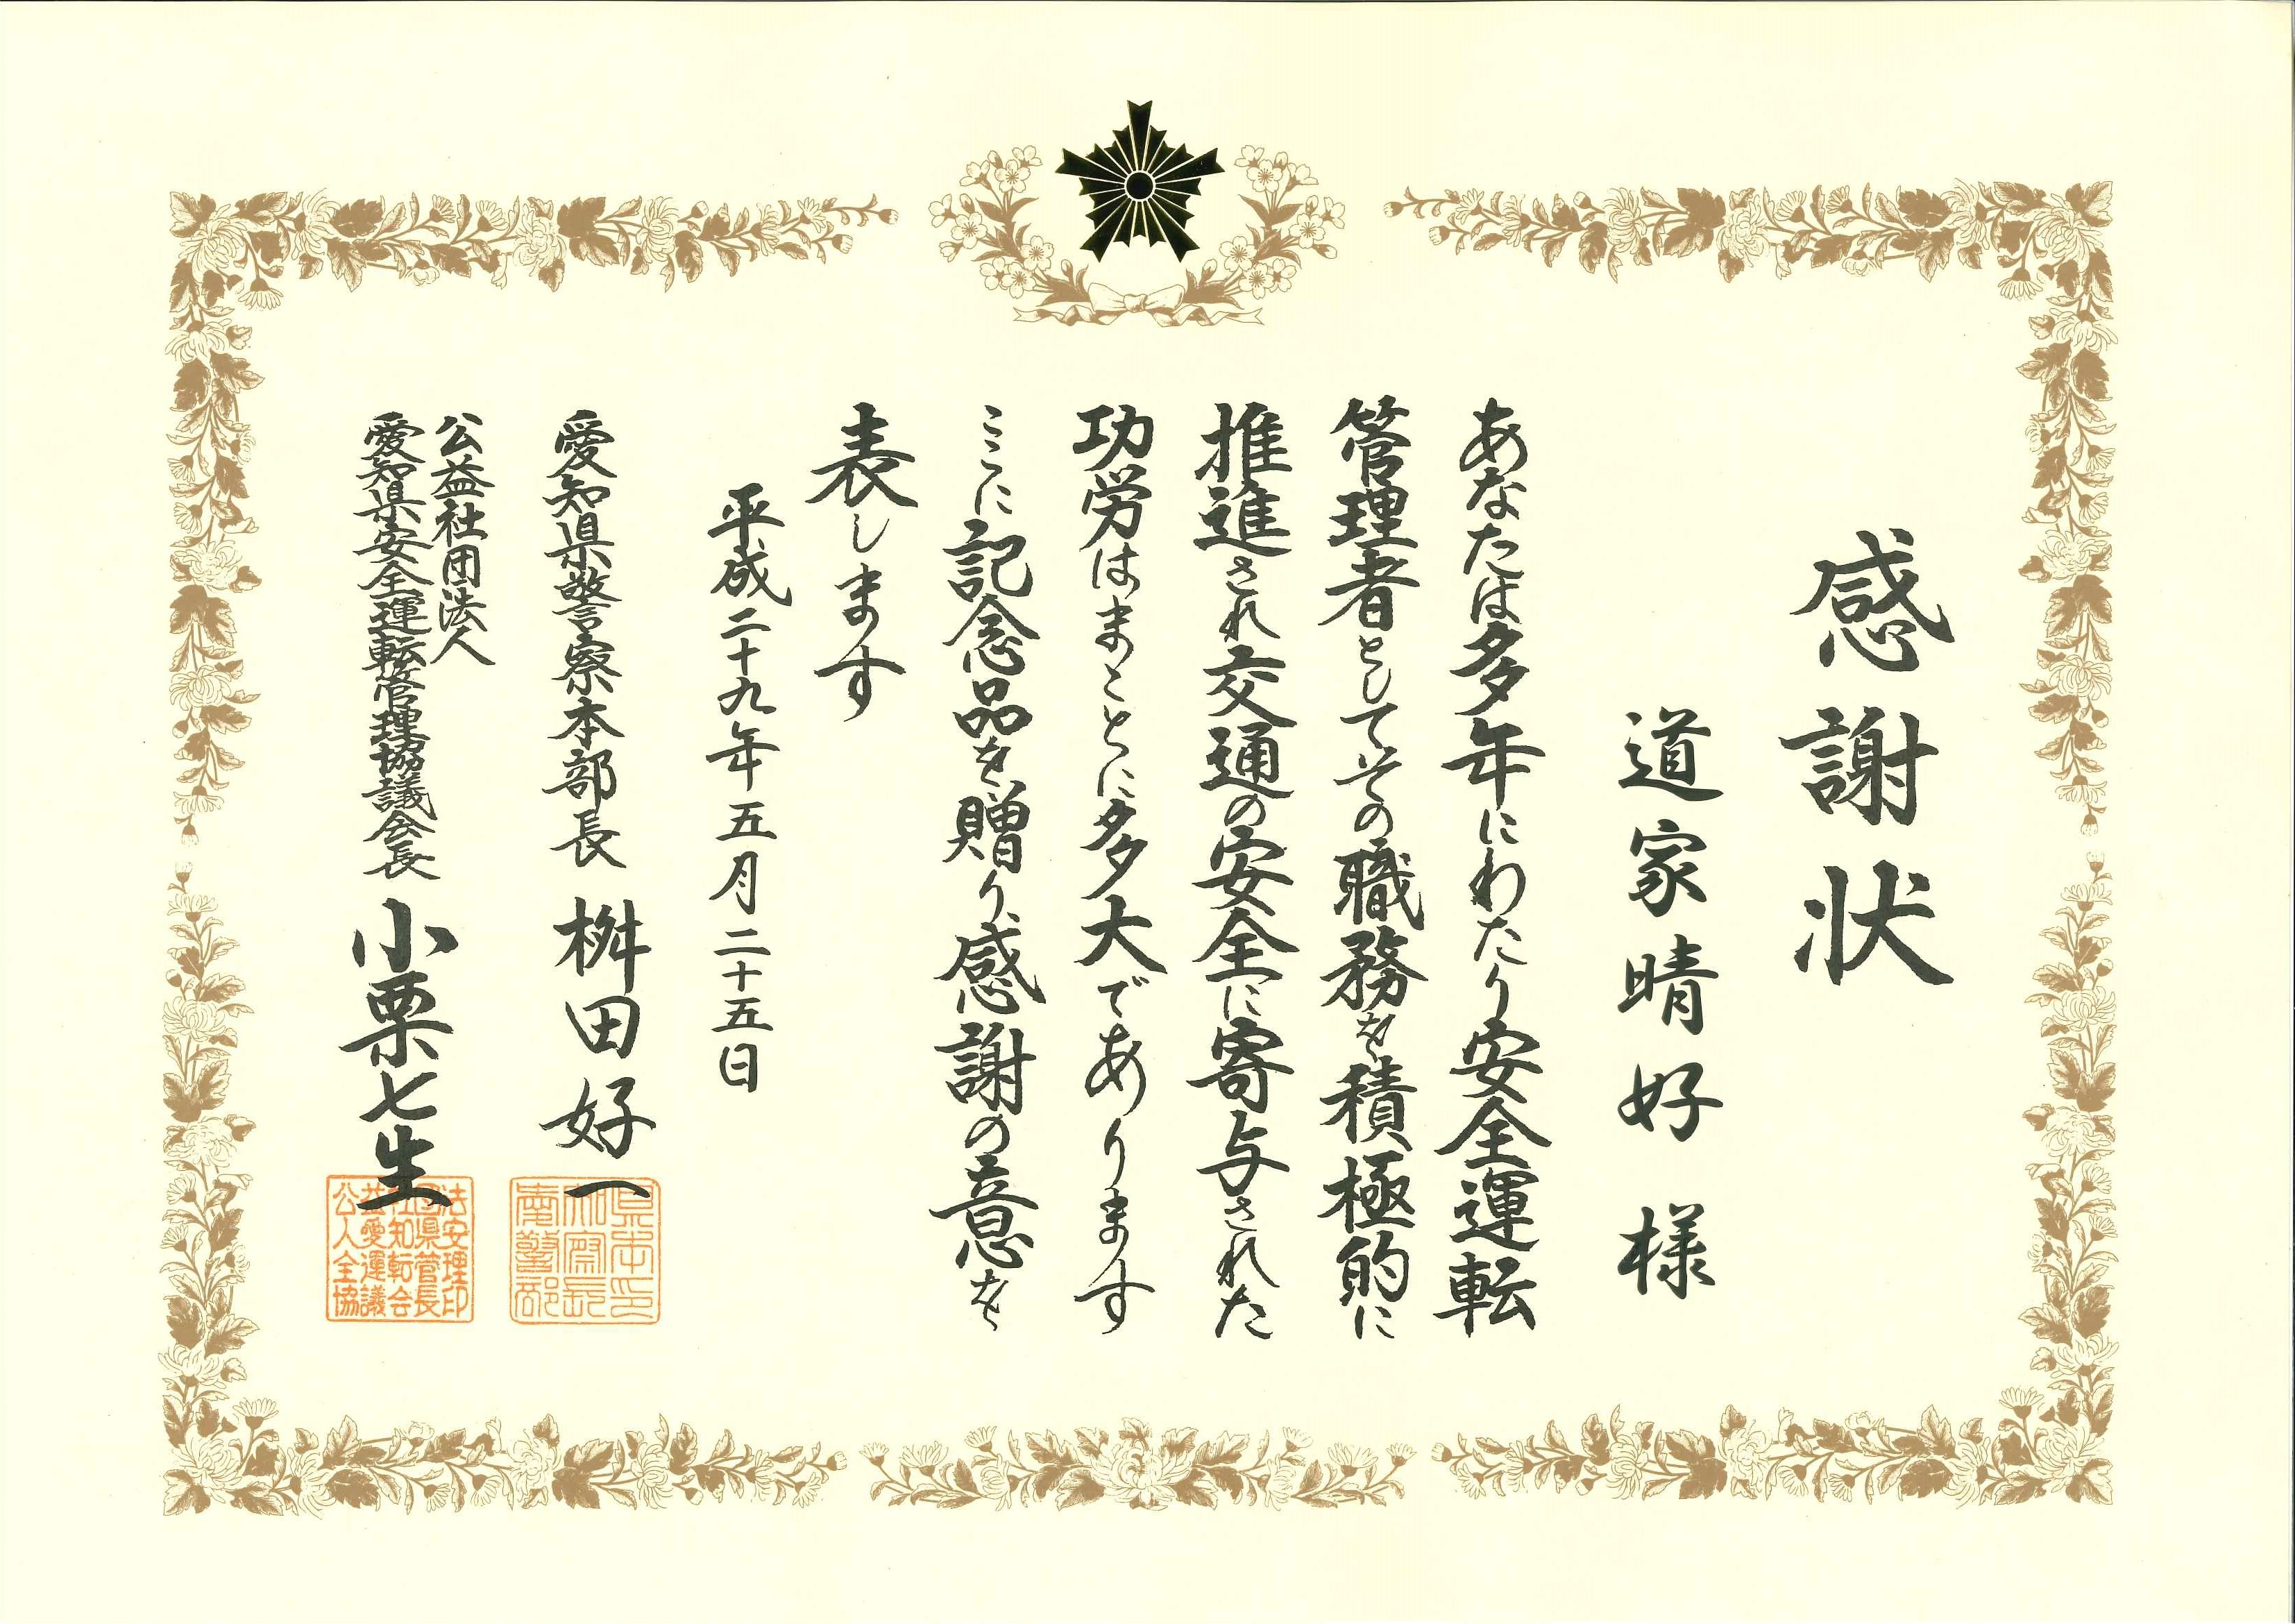 感謝状
道家晴好様
あなたは多年にわたり安全運転
管理者としてその職務を積極的に
推進され交通の安全に寄与された
功労はまことに多大であります
ここに記念品を贈り感謝の意を
表します
平成二十九年五月二十五日
愛知県警察本部長 桝田好一
公益社団法人
愛知県安全運転管理協議会長 小栗七生
愛知県警察本部長印
公益社団法人愛知県安全運転管理協議会長印